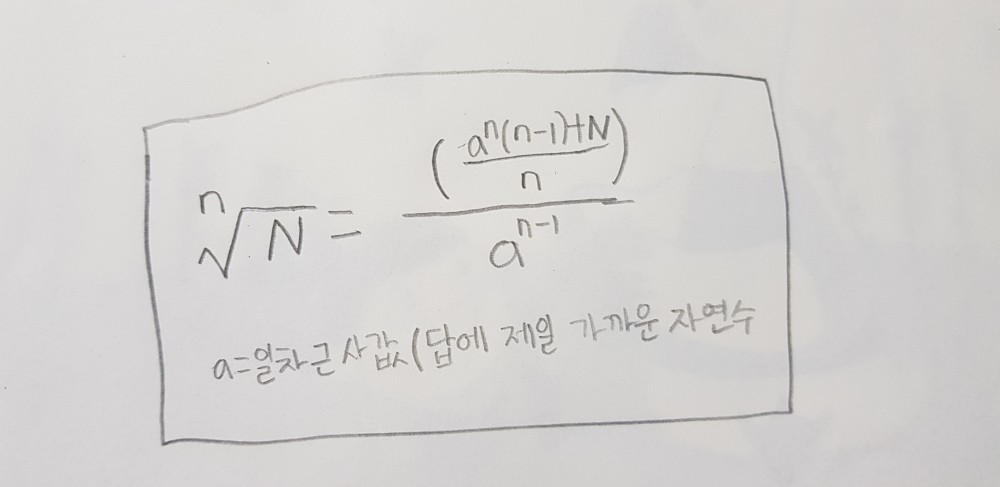 ⁿ√N = (aⁿ(n-1)+N / n) / aⁿ⁻¹
a=일차근사값(답에 제일 가까운 자연수